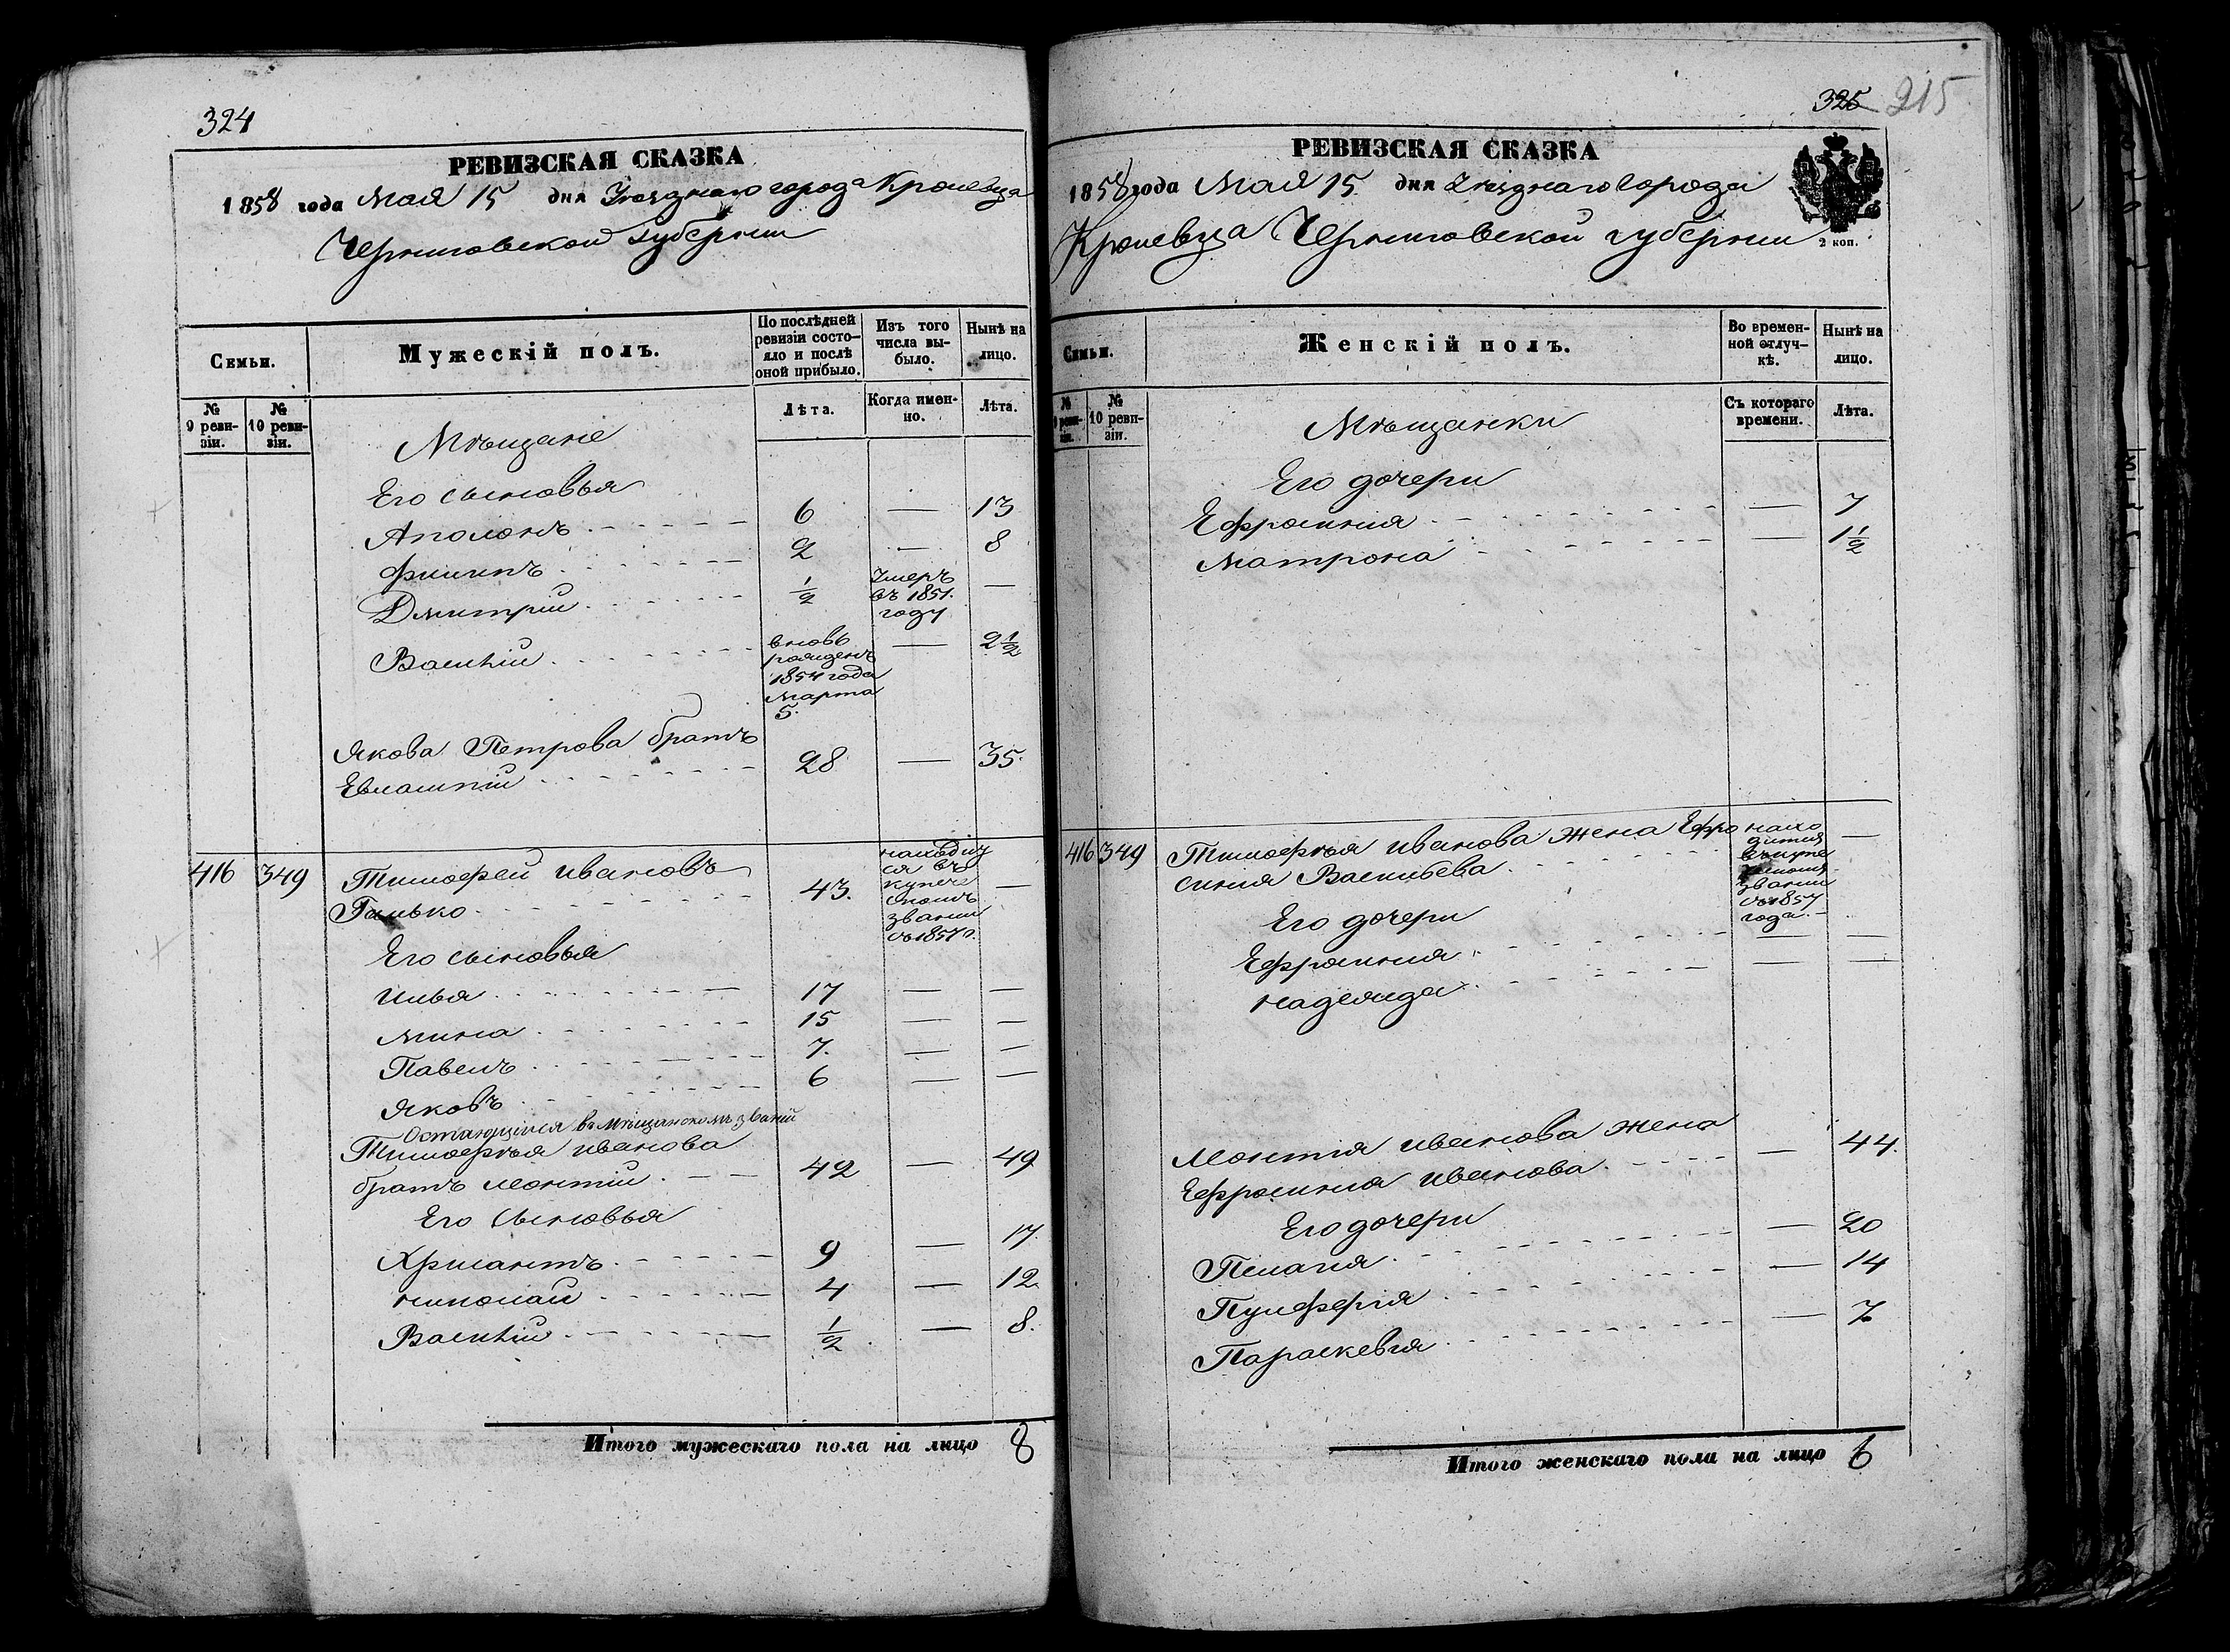 324
РЕВИЗСКАЯ СКАЗКА
1858 года Мая 15 дня Уезднаго города Кролевца
Черниговской губернии
Семьи.
Мужескій полъ.
По послѣдней ревизіи состо-
яло и послѣ
оной прибыло.
Изъ того
числа вы-
было.
Нынѣ на
лицо.
№
9 реви-
зіи.
№
10 реви-
зіи.
Лѣта.
Когда имен-
но.
Лѣта.
Мѣщане
Его сыновья
Аполонъ 6 — 13
Филипъ 2 — 8
Дмитрій 1/2 Умеръ въ 1851. году —
Василій вновь рожденъ 1854 года Марта 5. — 2 1/2
Якова Петрова братъ
Евлампій 28 — 35.
416 349 Тимофей Ивановъ
Галько 43. находит
ся въ
купече
скомъ
звании
съ 1857 г. —
Его сыновья
Илья 17 — —
Мина 15 — —
Павелъ 7. — —
Яковъ 6 — —
Остающіися въ мѣщанскомъ званій
Тимофѣя Иванова
братъ Леонтій 42 — 49
Его сыновья
Хрисантъ 9 — 17.
Николай 4 — 12.
Василій 1/2 — 8.
Итого мужескаго пола на лицо 8
325 215
РЕВИЗСКАЯ СКАЗКА
1858 года Мая 15 дня Уезднаго города
Кролевца Черниговской губернии
2 коп.
Семьи.
Женскій полъ.
Во времен-
ной отлуч-
кѣ.
Нынѣ на
лицо.
№
9 реви-
зіи.
№
10 реви-
зіи.
Съ котораго
времени.
Лѣта.
Мѣщанки
Его дочери
Ефросинія — 7
Матрона — 1 1/2
416 349 Тимофѣя Иванова жена Ефро
синия Васильева нахо
дится
въ купе
ческомъ
звании
съ 1857
года. —
Его дочери
Ефросиния — —
Надежда — —
Леонтія Иванова жена
Ефросиния Иванова — 44.
Его дочери
Пелагия — 20
Пулхерія — 14
Параскевія — 7
Итого женскаго пола на лицо 6